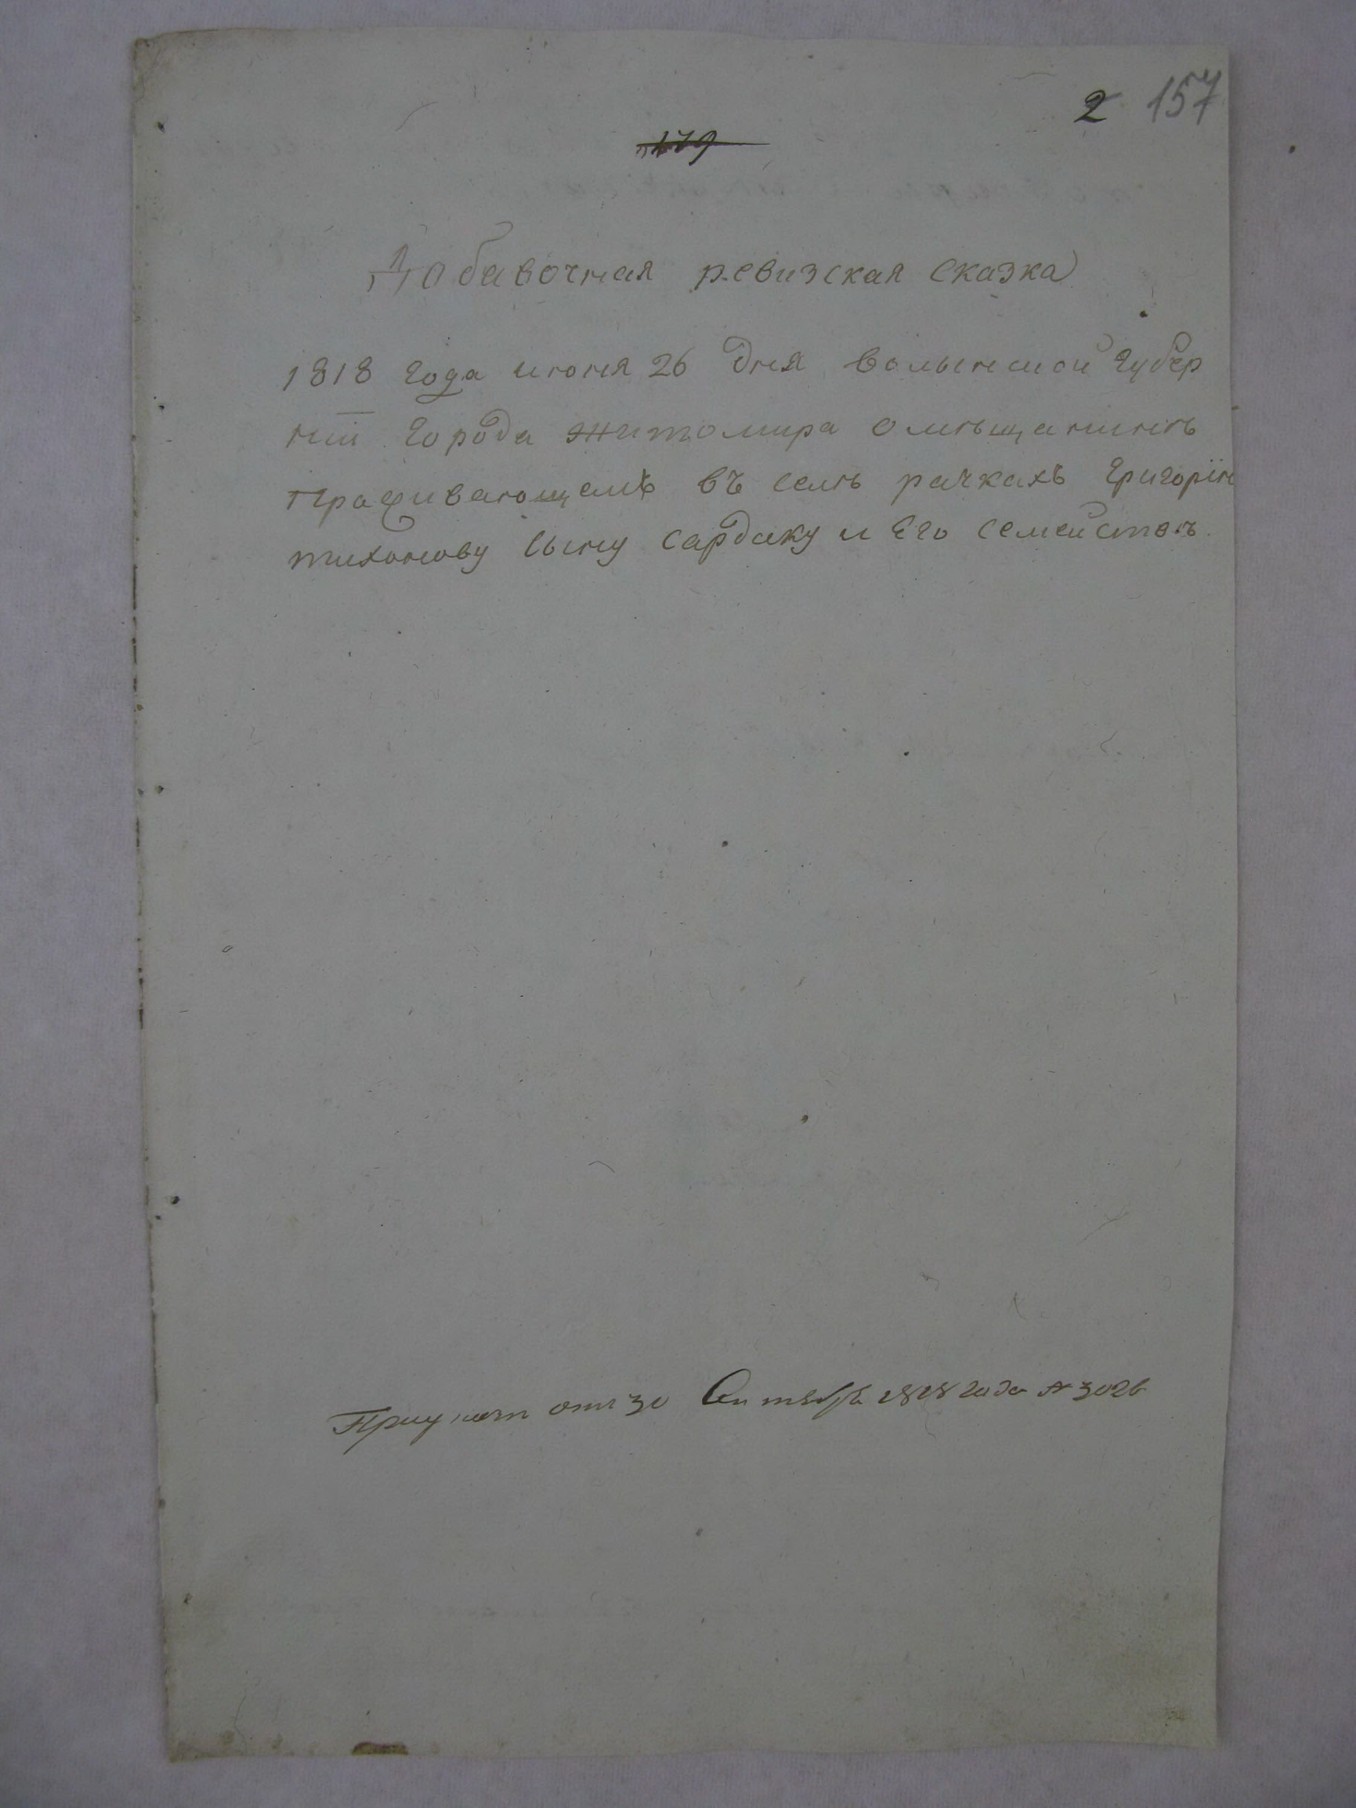 2 157
179
Добавочная ревизская сказка
1818 года июня 26 дня волынской губер
нии города житомира о мѣщанинѣ
Праживающемъ въ селѣ рачкахъ григорію
тихонову сыну сардаку и Его семействѣ.
отъ 30 Сентября 1818 года № 3026